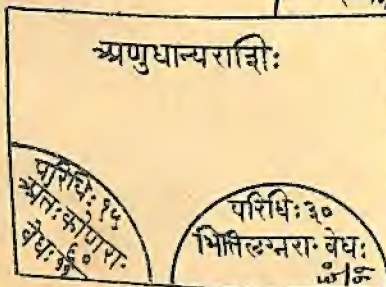 अणुधान्यराशिः
परिधिः १५
अंतःकोणरा-
वेधः ६०
११
परिधिः ३०
भित्तिलग्नरा- वेधः